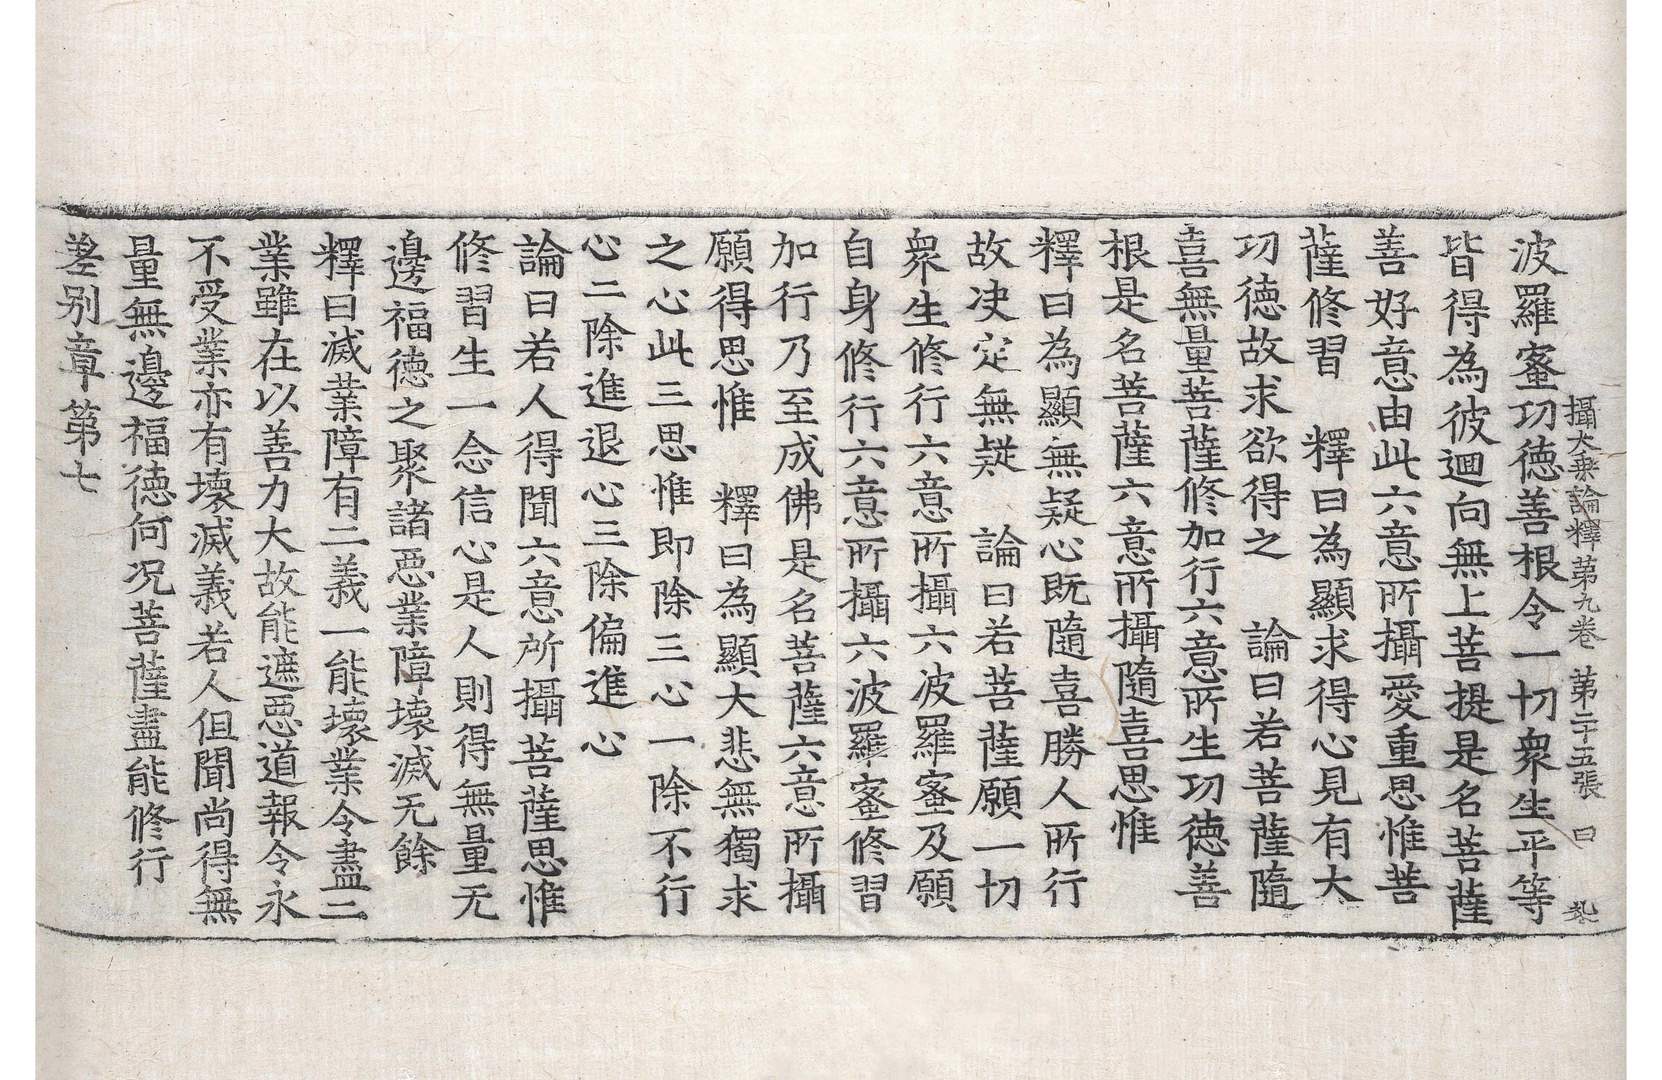 攝大乘論釋第九卷 第二十五張 曰
波羅蜜功徳善根令一切衆生平等
皆得為彼迴向無上菩提是名菩薩
善好意由此六意所攝愛重思惟菩
薩修習 釋曰為顯求得心見有大
功徳故求欲得之 論曰若菩薩隨
喜無量菩薩修加行六意所生功徳善
根是名菩薩六意所攝隨喜思惟
釋曰為顯無疑心既隨喜勝人所行
故决定無疑 論曰若菩薩願一切
衆生修行六意所攝六波羅蜜及願
自身修行六意所攝六波羅蜜修習
加行乃至成佛是名菩薩六意所攝
願得思惟 釋曰為顯大悲無獨求
之心此三思惟即除三心一除不行
心二除進退心三除偏進心
論曰若人得聞六意所攝菩薩思惟
修習生一念信心是人則得無量无
邊福德之聚諸惡業障壞滅无餘
釋曰滅業障有二義一能壞業令盡二
業雖在以善力大故能遮惡道報令永
不受業亦有壞滅義若人但聞尚得無
量無邊福徳何况菩薩盡能修行
差别章第七